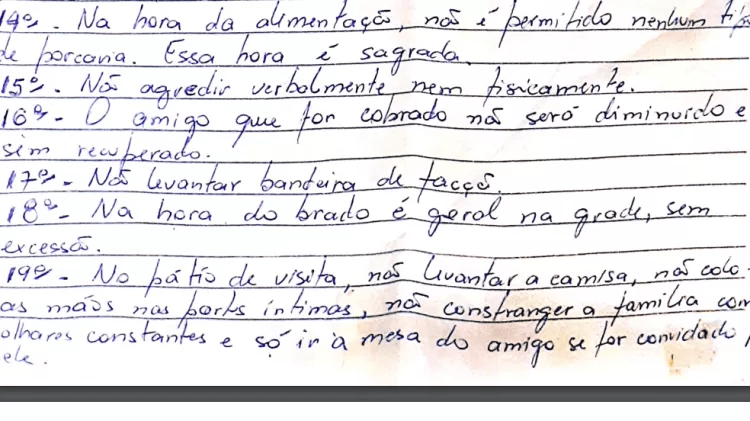 14º. Na hora da alimentação, não é permitido nenhum tipo
de porcaria. Essa hora é sagrada.
15º. Não agredir verbalmente nem fisicamente.
16º - O amigo que for cobrado não será diminuido e
sim recuperado.
17º - Não levantar bandeira de facção.
18º - Na hora do brado é geral na grade, sem
excessão.
19º - No pátio de visita, não levantar a camisa, não colo-
as mãos nas parts íntimas, não constranger a família com
olhares constantes e só ir à mesa do amigo se for convidado,
ele.